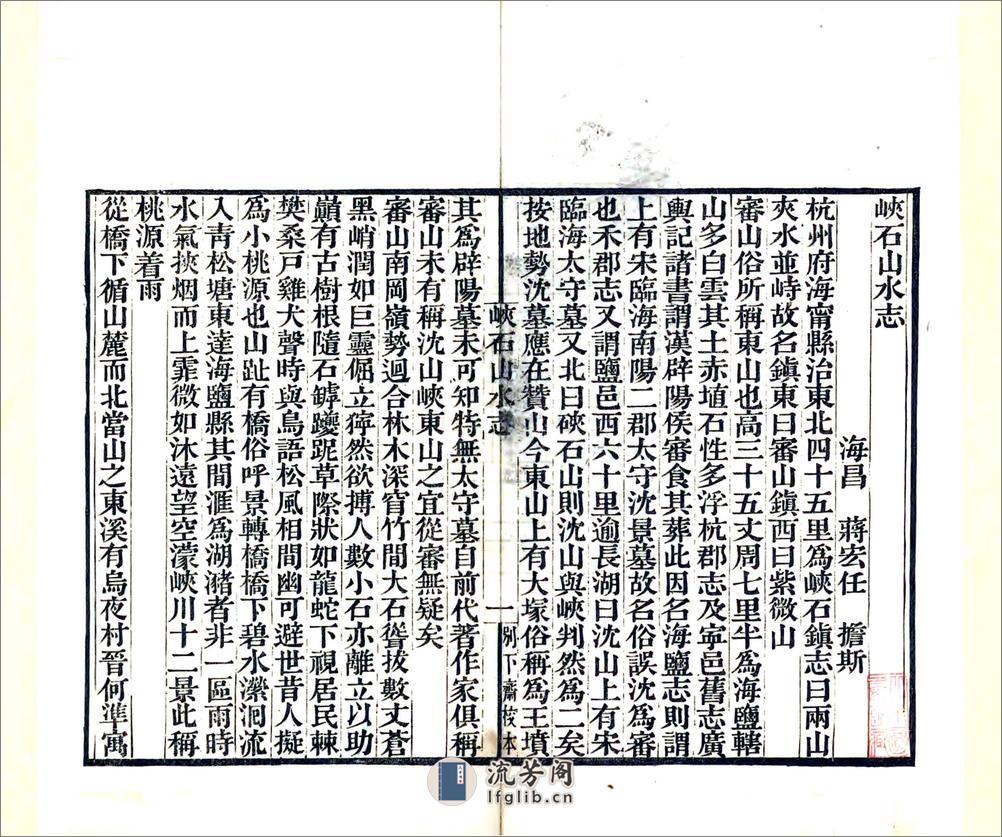 峽石山水志
海昌　蔣宏任　擔斯
杭州府海甯縣治東北四十五里爲峽石鎮志曰兩山
夾水並峙故名鎮東曰審山鎮西曰紫微山
審山俗所稱東山也高三十五丈周七里半爲海鹽轄
山多白雲其土赤埴石性多浮杭郡志及寕邑舊志廣
輿記諸書謂漢辟陽侯審食其葬此因名海鹽志則謂
上有宋臨海南陽二郡太守沈景墓故名俗誤沈爲審
也禾郡志又謂鹽邑西六十里逾長湖曰沈山上有宋
臨海太守墓又北曰硤石山則沈山與峽判然爲二矣
按地勢沈墓應在贊山今東山上有大塚俗稱爲王墳
峽石山水志
一
別下齋校本
其爲辟陽墓未可知特無太守墓自前代著作家俱稱
審山未有稱沈山峽東山之宜從審無疑矣
審山南岡嶺勢迴合林木深窅竹間大石聳拔數丈蒼
黑峭潤如巨靈倔立獰然欲搏人數小石亦離立以助
巔有古樹根隨石罅躨跜草際狀如龍蛇下視居民棘
樊桑戸雞犬聲時與鳥語松風相間幽可避世昔人擬
爲小桃源也山趾有橋俗呼景轉橋橋下碧水瀠洄流
入青松塘東達海鹽縣其間滙爲湖瀦者非一區雨時
水氣挾烟而上霏微如沐遠望空濛峽川十二景此稱
桃源着雨
從橋下循山麓而北當山之東溪有烏夜村晉何準寓
流芳阁
lfglib.cn